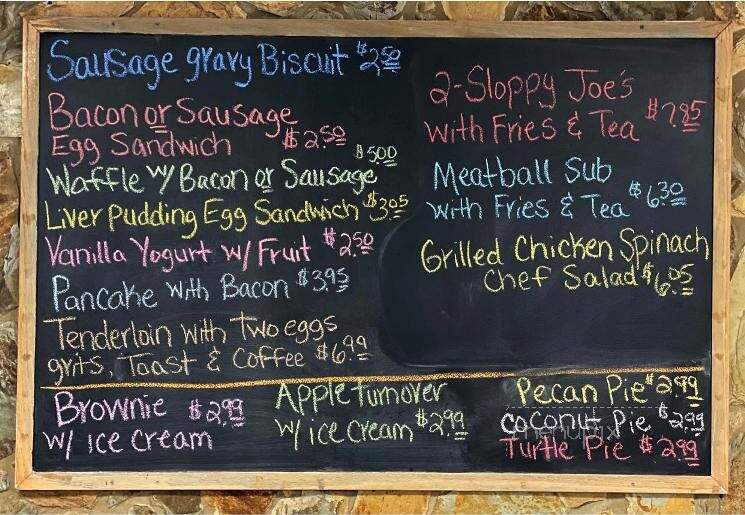 Sausage gravy Biscuit $2.50
Bacon or Sausage
Egg Sandwich $2.50
Waffle w/ Bacon or Sausage $5.00
Liver pudding Egg Sandwich $3.05
Vanilla Yogurt w/ Fruit $2.50
Pancake with Bacon $3.95
Tenderloin with Two eggs
grits, Toast & Coffee $6.99
2-Sloppy Joe's
with Fries & Tea $7.85
Meatball Sub
with Fries & Tea $6.30
Grilled Chicken Spinach
Chef Salad $6.05
Brownie $2.99
w/ ice Cream
Apple turnover
w/ ice cream $2.99
Pecan Pie $2.99
coconut Pie $2.99
Turtle Pie $2.99